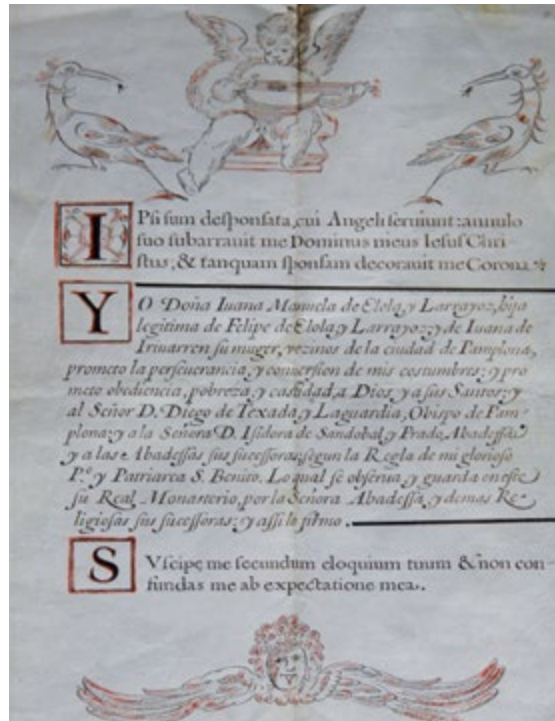 IPſi ſum deſponſata, cui Angeli ſeruiunt: annulo
ſuo ſubarrauit me Dominus meus Ieſus Chri
ſtus, & tanquam ſponſam decorauit me Corona.
YO Doña Iuana Manuela de Elola, y Larrayoz, hija
legitima de Felipe de Elola, y Larrayoz, y de Iuana de
Iriuarren ſu muger, vezinos de la ciudad de Pamplona,
prometo la perſeuerancia, y conuerſion de mis coſtumbres: y pro
meto obediencia, pobreza, y caſtidad, a Dios, y a ſus Santos: y
al Señor D. Diego de Texada, y Laguardia, Obiſpo de Pam-
plona: y a la Señora D. Iſidora de Sandobal, y Prado, Abadeſſa
y a las Abadeſſas ſus ſuceſſoras, ſegun la Regla de mi glorioſo
P.º y Patriarca S. Benito. Lo qual ſe obſerua, y guarda en eſte
ſu Real Monaſterio, por la Señora Abadeſſa, y demas Re-
ligioſas ſus ſuceſſoras: y aſſi lo firmo.
SVſcipe me ſecundum eloquium tuum & non con-
fundas me ab expectatione mea.